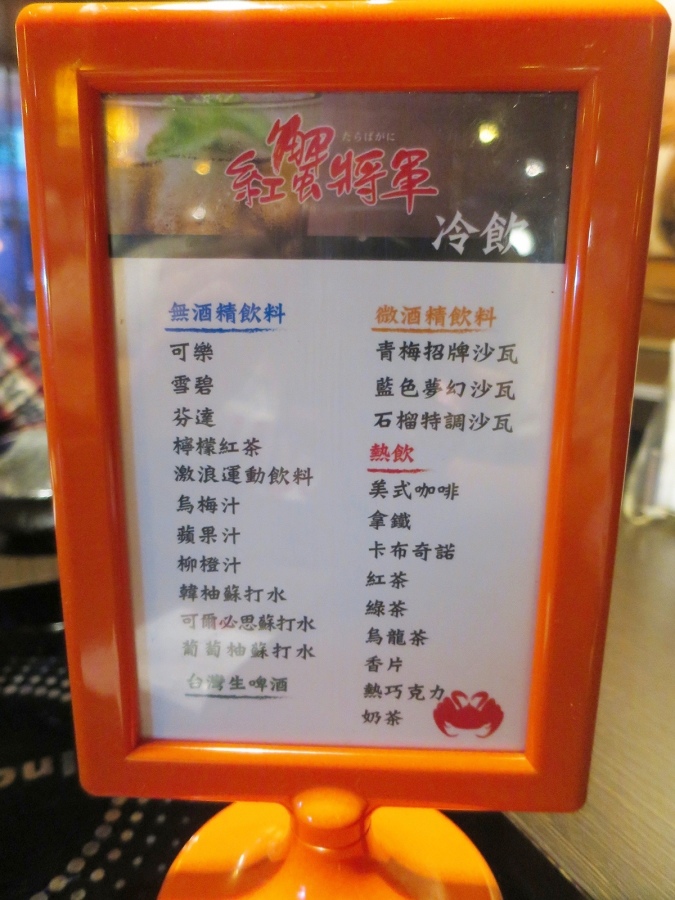 たらばがに
紅蟹將軍
冷飲
無酒精飲料
可樂
雪碧
芬達
檸檬紅茶
激浪運動飲料
烏梅汁
蘋果汁
柳橙汁
韓柚蘇打水
可爾必思蘇打水
葡萄柚蘇打水
台灣生啤酒
微酒精飲料
青梅招牌沙瓦
藍色夢幻沙瓦
石榴特調沙瓦
熱飲
美式咖啡
拿鐵
卡布奇諾
紅茶
綠茶
烏龍茶
香片
熱巧克力
奶茶